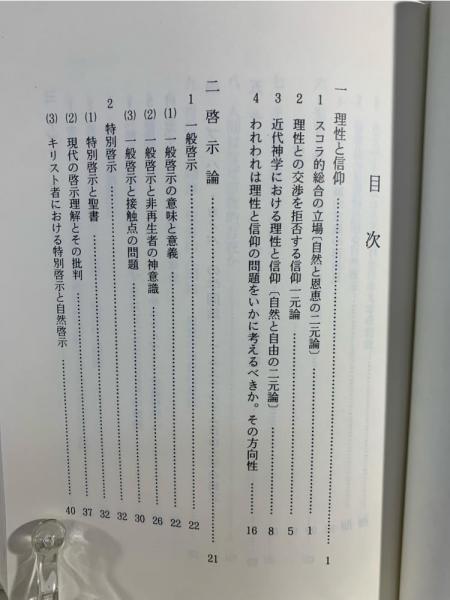 目次
一 理性と信仰……1
1 スコラ的総合の立場〔自然と恩恵の二元論〕……1
2 理性との交渉を拒否する信仰一元論……5
3 近代神学における理性と信仰〔自然と自由の二元論〕……8
4 われわれは理性と信仰の問題をいかに考えるべきか。その方向性……16
二 啓示論……21
1 一般啓示……22
(1) 一般啓示の意味と意義……22
(2) 一般啓示と非再生者の神意識……26
(3) 一般啓示と接触点の問題……30
2 特別啓示……32
(1) 特別啓示と聖書……32
(2) 現代の啓示理解とその批判……37
(3) キリスト者における特別啓示と自然啓示……40